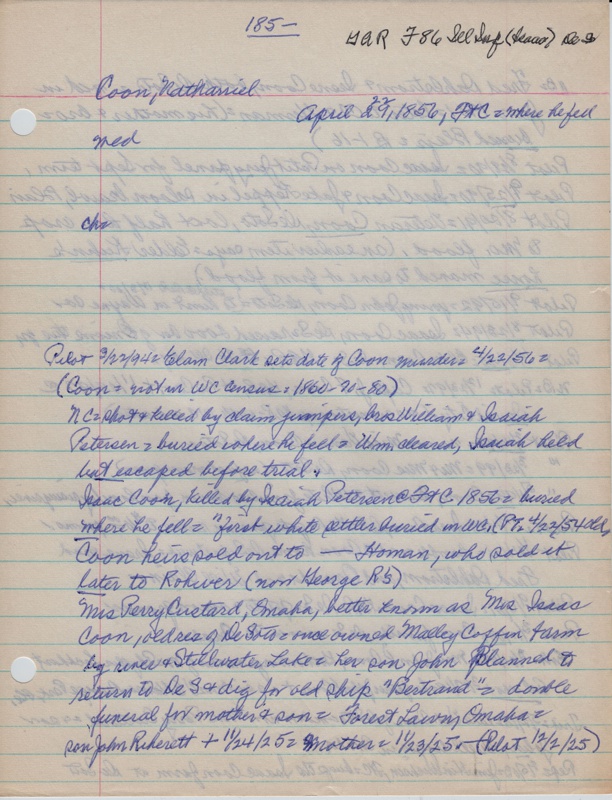 185-
GAR F86 Sel Insp (Isaac) De S
Coon, Nathaniel
April 22 29, 1856, Ft C = where he fell
med
ch=
Pilot 3/22/94 = Elam Clark sets date of Coon murder = 4/22/56 =
(Coon = not in WC Census = 1860-70-80)
NC = shot & killed by claim jumpers, bros William & Isaiah
Petersen = buried where he fell = Wm cleared, Isaiah held
but escaped before trial.
Isaac Coon, killed by Isaiah Petersen @ Ft C 1856 = buried
where he fell = "first white settler buried in WC, (PT. 4/22/54
Coon heirs sold out to — Homan, who sold it
later to Rohwer (now George R's)
Mrs Perry Custard, Omaha, better known as Mrs Isaac
Coon, old res of De Soto = once owned Coffin farm
by river & Stillwater Lake = her son John planned to
return to De S & dig for old ship "Bertrand" = double
funeral for mother & son = Forest Lawn, Omaha =
son John + 11/24/25 = Mother = 11/23/25 - (Pilot 12/2/25)